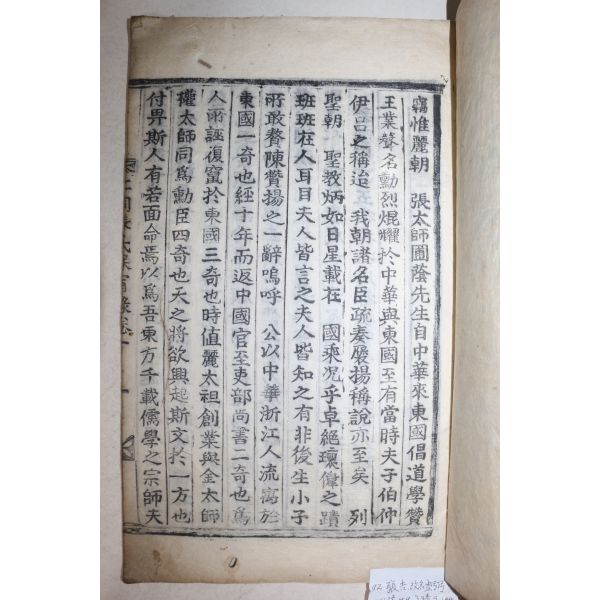 竊惟麗朝 張太師圃蔭先生自中華來東國倡道學贊
王業聲名勳烈焜耀於中華與東國至有當時夫子伯仲
伊呂之稱迨 我朝諸名臣疏奏褒揚稱說亦至矣 列
聖朝 聖敎炳如日星載在 國乘况乎卓絕瓌偉之蹟
班班在人耳目夫人皆言之夫人皆知之有非後生小子
所敢贅陳贊揚之一辭嗚呼 公以中華浙江人流寓於
東國一奇也經十年而返中國官至吏部尙書二奇也爲
人所誣復竄於東國三奇也時値麗太祖創業與金太師
權太師同爲勳臣四奇也天之將欲興起斯文於一方也
付畀斯人有若面命焉以爲吾東方千載儒學之宗師夫